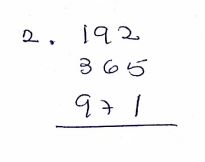 2. 192
365
971